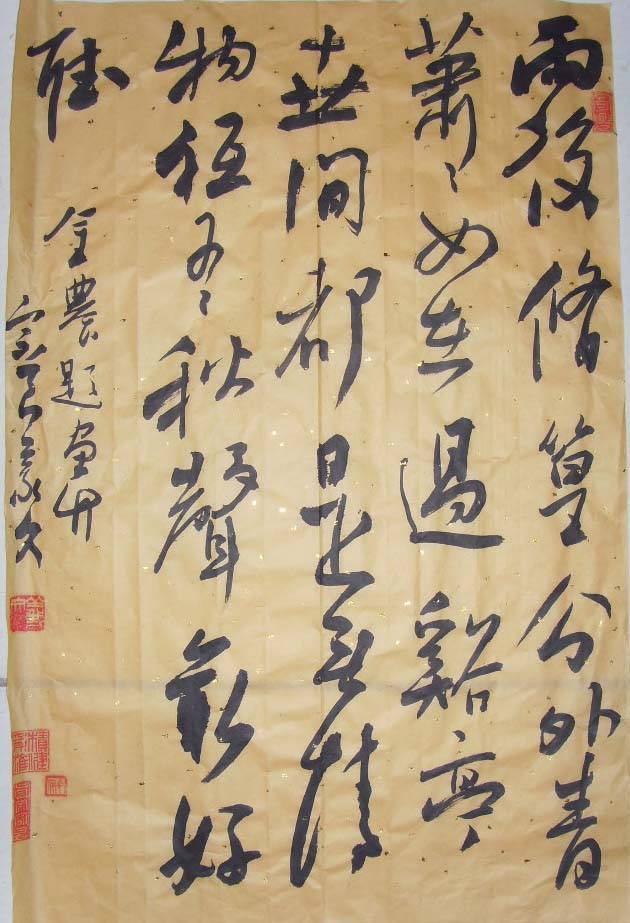 雨後脩篁分外青
蕭〻如在過谿亭
世間都是無情
物有秋聲最好
聽
金農題畫竹